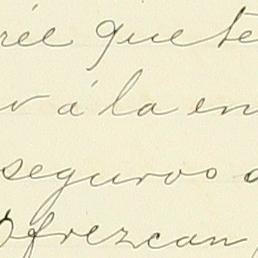 réé que te
v á la en
seguros
Ofrezcan,